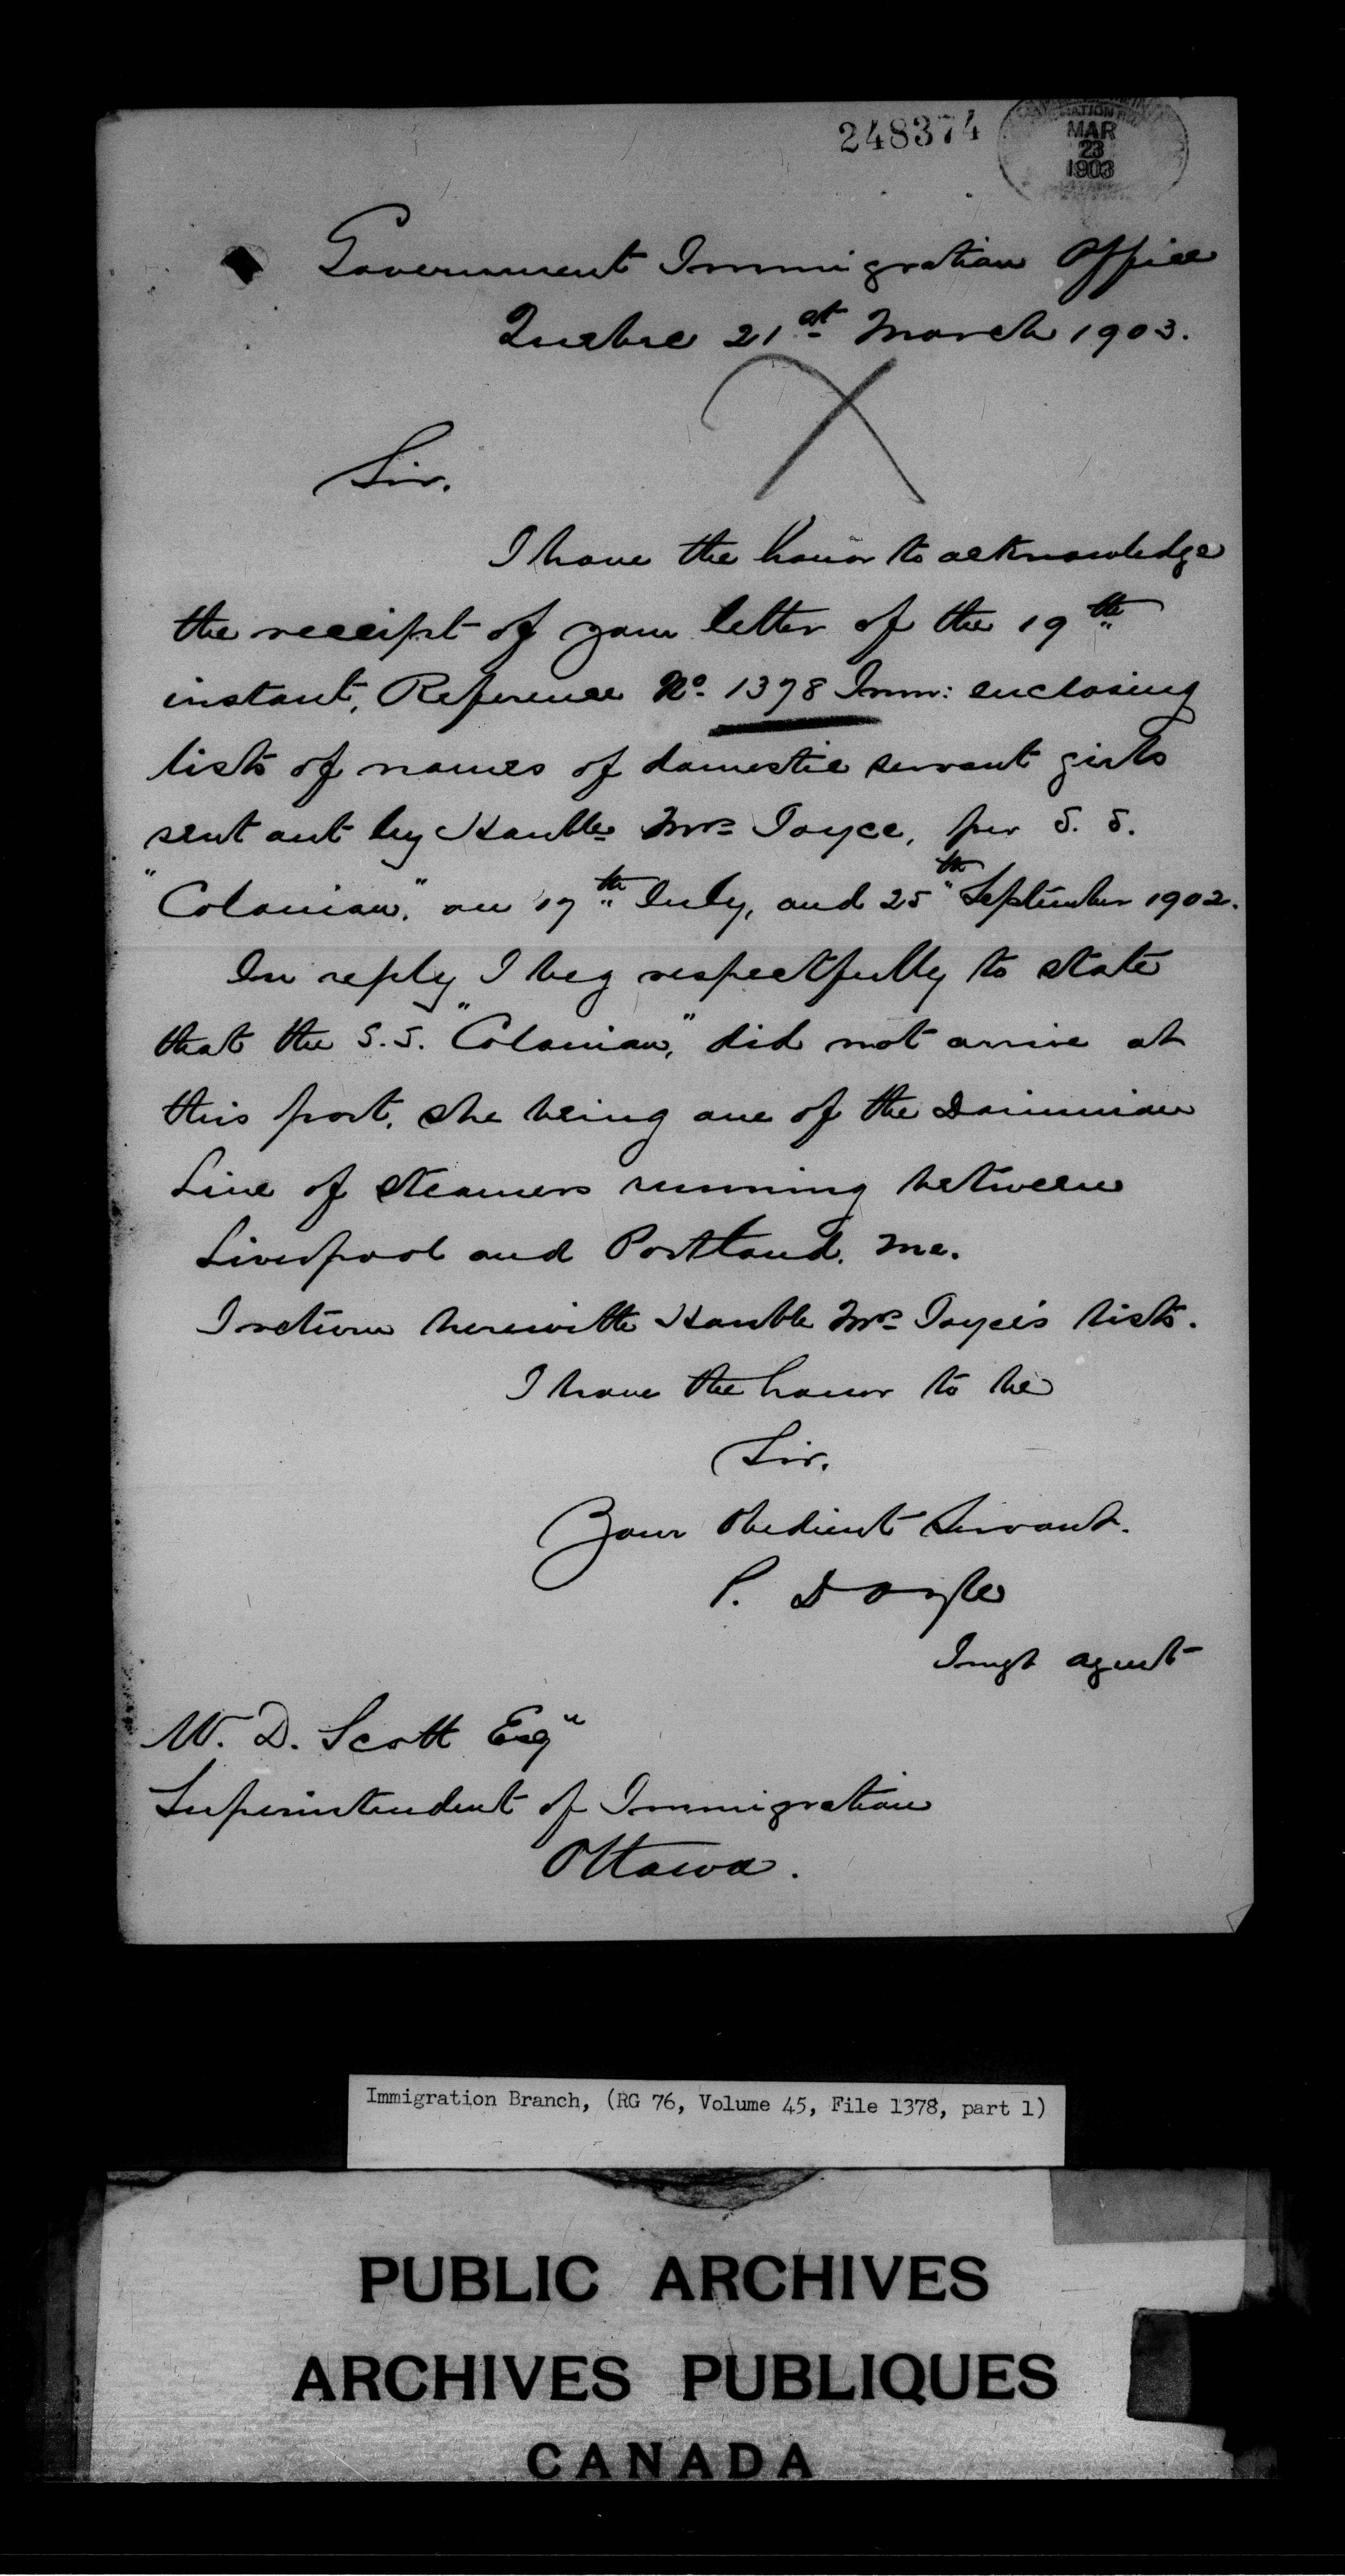 248374
MAR
23
1903
Government Immigration Office
Quebec 21st March 1903.
Sir.
I have the honor to acknowledge
the receipt of your letter of the 19th
instant, Reference No. 1378 Imm: enclosing
lists of names of domestic servant girls
sent out by Honble Mrs Joyce, per S. S.
"Colonian," on 17th July, and 25th September 1902.
In reply I beg respectfully to state
that the S.S. "Colonian," did not arrive at
this port, she being one of the Dominion
Line of steamers running between
Liverpool and Portland, Me.
I return herewith Honble Mrs Joyce's lists.
I have the honor to be
Sir.
Your Obedient Servant.
P. Doyle
Imgt agent
W. D. Scott Esqr
Superintendent of Immigration
Ottawa.
Immigration Branch, (RG 76, Volume 45, File 1378, part 1)
PUBLIC ARCHIVES
ARCHIVES PUBLIQUES
CANADA